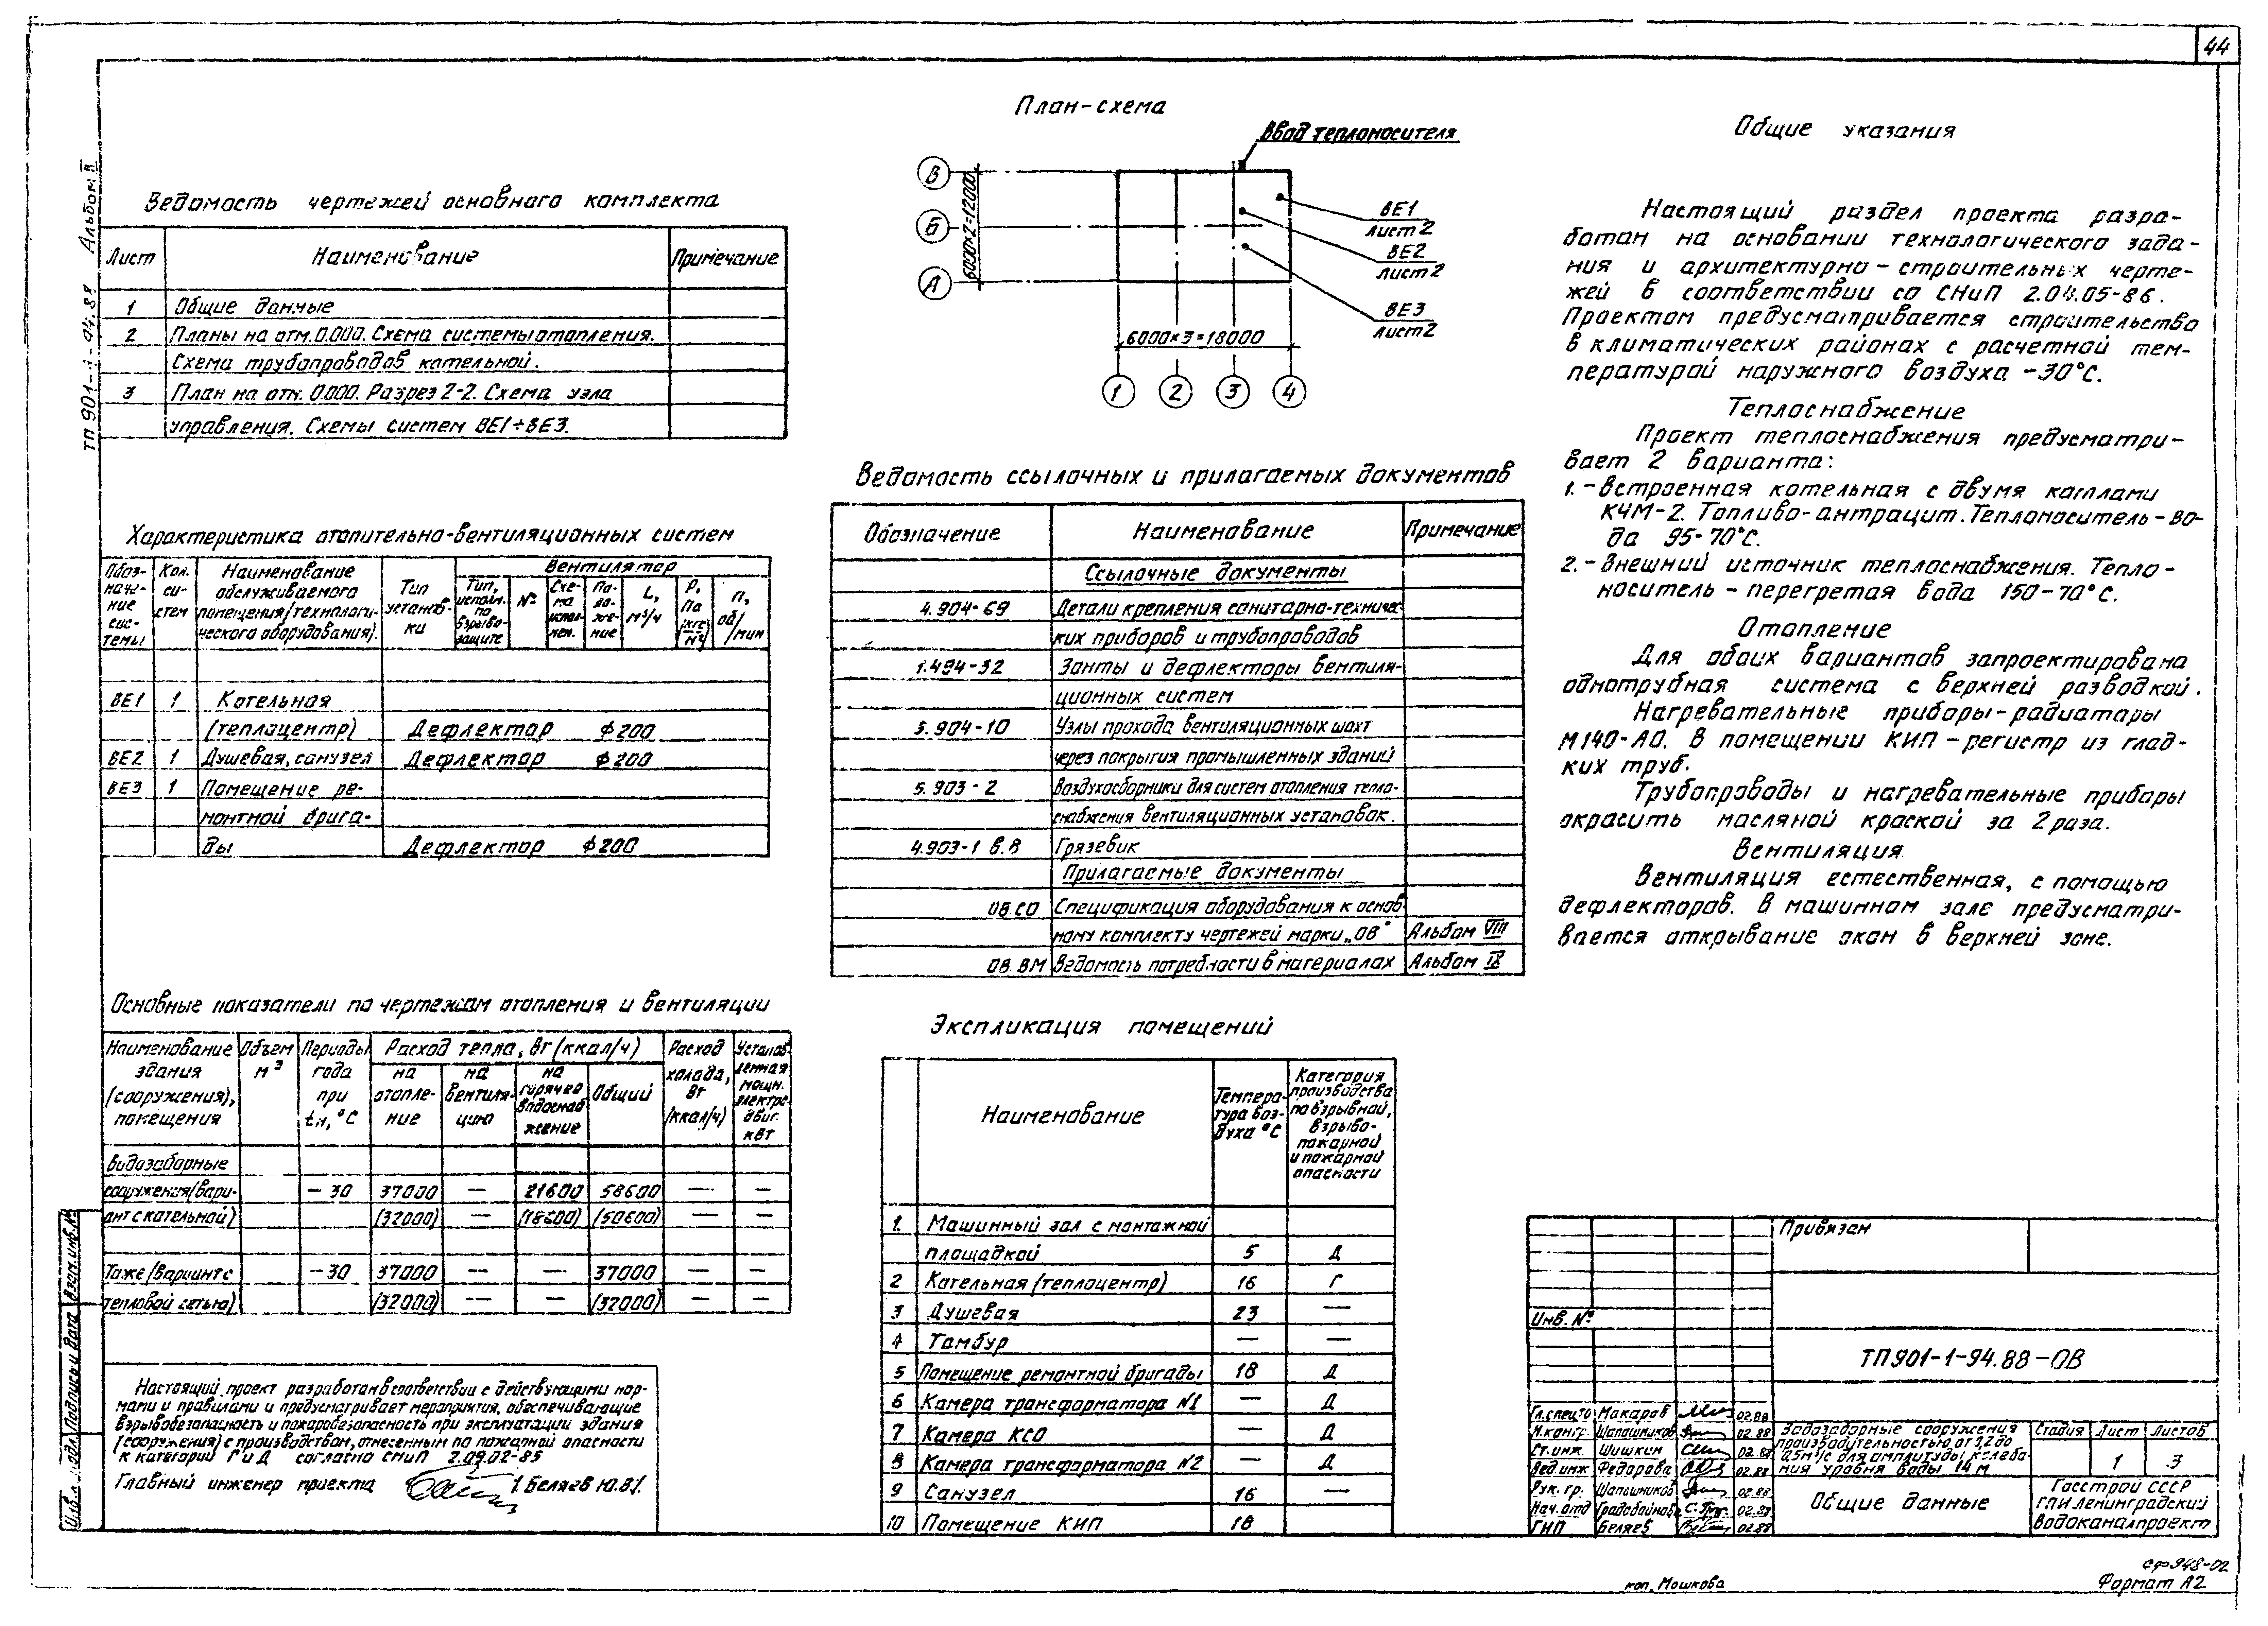 44
ТП 901-1-94.88 Альбом II
Ведомость чертежей основного комплекта
Лист Наименование Примечание
1 Общие данные
2 Планы на отм. 0.000. Схема системы отопления.
Схема трубопроводов котельной.
3 План на отм. 0.000. Разрез 2-2. Схема узла
управления. Схемы систем ВЕ1÷ВЕ3.
Характеристика отопительно-вентиляционных систем
Обоз-
наче-
ние
сис-
темы
Кол.
си-
стем
Наименование
обслуживаемого
помещения/технологи-
ческого оборудования).
Тип
установ-
ки
Вентилятор
Тип,
исполн.
по
взрыво-
защите
№
Схе-
ма
испол-
нен.
По-
ло-
же-
ние
L,
м³/ч
Р,
Па
(кгс/м²)
п,
об/мин
ВЕ1 1 Котельная
(теплоцентр) Дефлектор ф200
ВЕ2 1 Душевая, санузел Дефлектор ф200
ВЕ3 1 Помещение ре-
монтной брига-
ды Дефлектор ф200
Основные показатели по чертежам отопления и вентиляции
Наименование
здания
(сооружения),
помещения
Объем
м³
Периоды
года
при
tн, °С
Расход тепла, вт (ккал/ч)
на
отопле-
ние
на
вентиля-
цию
на
горячее
водоснаб
жение
Общий
Расход
холода,
вт
(ккал/ч)
Установ-
ленная
мощн.
электро-
двиг.
квт
Водозаборные
сооружения(вари- -30 37000 — 21600 58600 — —
ант с котельной) (32000) — (18600) (50600) — —
Тоже (вариант с -30 37000 — — 37000 — —
тепловой сетью) (32000) — — (32000) — —
Настоящий проект разработан в соответствии с действующими нор-
мами и правилами и предусматривает мероприятия, обеспечивающие
взрывобезопасность и пожаробезопасность при эксплуатации здания
(сооружения) с производством, отнесенным по пожарной опасности
к категории Г и Д согласно СНиП 2.09.02-85
Главный инженер проекта /Беляев Ю.В/.
Взам. инв. №
Подпись и дата
Инв. № подл.
План-схема
Ввод теплоносителя
В
Б
А
6000×2=12000
6000×3=18000
1 2 3 4
ВЕ1
лист 2
ВЕ2
лист 2
ВЕ3
лист 2
Ведомость ссылочных и прилагаемых документов
Обозначение Наименование Примечание
Ссылочные документы
4.904-69 Детали крепления санитарно-техничес
ких приборов и трубопроводов
1.494-32 Зонты и дефлекторы вентиля-
ционных систем
5.904-10 Узлы прохода вентиляционных шахт
через покрытия промышленных зданий
5.903-2 Воздухосборники для систем отопления тепло-
снабжения вентиляционных установок.
4.903-1 в.8 Грязевик
Прилагаемые документы
ОВ.СО Спецификация оборудования к основ
ному комплекту чертежей марки „ОВ" Альбом VIII
ОВ.ВМ Ведомость потребности в материалах Альбом IX
Экспликация помещений
Наименование
Темпера-
тура воз-
духа °С
Категория
производства
по взрывной,
взрыво-
пожарной
и пожарной
опасности
1. Машинный зал с монтажной
площадкой 5 Д
2 Котельная (теплоцентр) 16 Г
3 Душевая 23 —
4 Тамбур — —
5 Помещение ремонтной бригады 18 Д
6 Камера трансформатора №1 — Д
7 Камера КСО — Д
8 Камера трансформатора №2 — Д
9 Санузел 16 —
10 Помещение КИП 18
Общие указания
Настоящий раздел проекта разра-
ботан на основании технологического зада-
ния и архитектурно-строительных черте-
жей в соответствии со СНиП 2.04.05-86.
Проектом предусматривается строительство
в климатических районах с расчетной тем-
пературой наружного воздуха -30°С.
Теплоснабжение
Проект теплоснабжения предусматри-
вает 2 варианта:
1.-Встроенная котельная с двумя котлами
КЧМ-2. Топливо-антрацит. Теплоноситель-во-
да 95-70°С.
2.-Внешний источник теплоснабжения. Тепло-
носитель-перегретая вода 150-70°С.
Отопление
Для обоих вариантов запроектирована
однотрубная система с верхней разводкой.
Нагревательные приборы-радиаторы
М140-АО. В помещении КИП-регистр из глад-
ких труб.
Трубопроводы и нагревательные приборы
окрасить масляной краской за 2 раза.
Вентиляция
Вентиляция естественная, с помощью
дефлекторов. В машинном зале предусматри-
вается открывание окон в верхней зоне.
Привязан
Инв. №
ТП 901-1-94.88-ОВ
Гл.спец.ТО Макаров 02.88
Н.контр. Шапошников 02.88
Ст.инж. Шишкин 02.88
Вед.инж Федорова 02.88
Рук. гр. Шапошников 02.88
Нач.отд Градобойнова 02.88
ГИП Беляев 02.88
Водозаборные сооружения
производительностью от 0,2 до
0,5м³/с для амплитуды колеба-
ния уровня воды 14 м
Стадия Лист Листов
1 3
Общие данные
Госстрой СССР
ГПИ Ленинградский
Водоканалпроект
коп. Мошкова
сф948-02
Формат А2